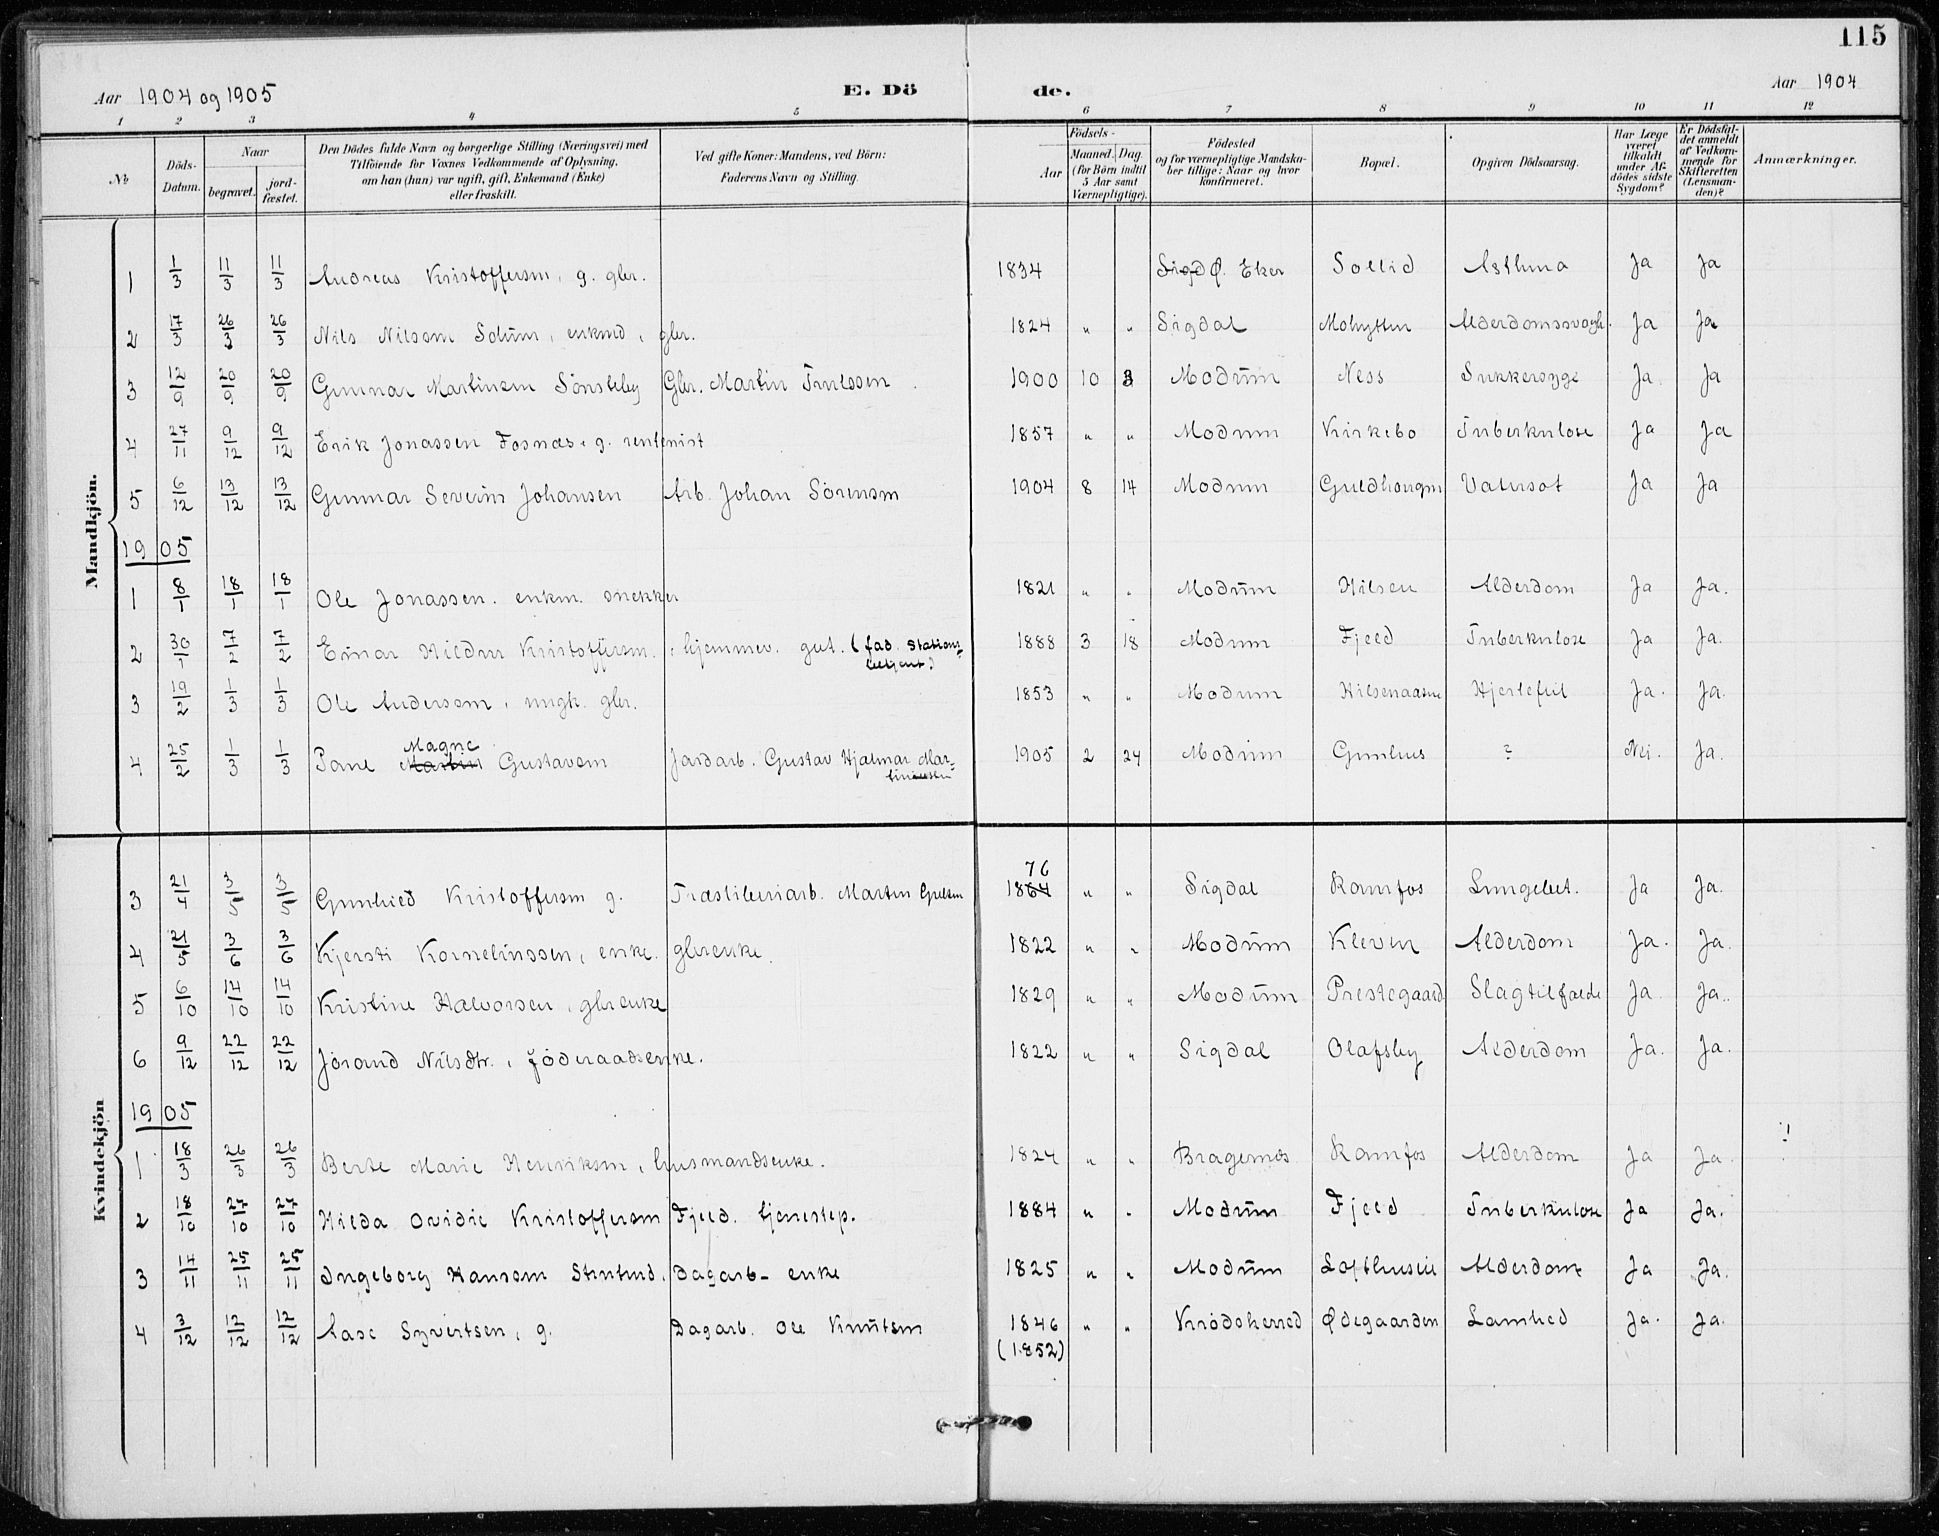 115
Aar 1904 og 1905 E. Dö de. Aar 1904
1 2 3 4 5 6 7 8 9 10 11 12
№ Döds-Datum. Naar begravet. jord-fæstet. Den Dödes fulde Navn og borgerlige Stilling (Næringsvei) med Tilföiende for Voxnes Vedkommende af Oplysning, om han (hun) var ugift, gift, Enkemand (Enke) eller fraskilt. Ved gifte Koner: Mandens, ved Börn: Faderens Navn og Stilling. Födsels- Aar Maaned. Dag (for Börn indtil 5 Aar samt Værnepligtige). Födested og for værnepligtige Mandskaber tillige: Naar og hvor konfirmeret. Bopæl. Opgiven Dödsaarsag. Har Læge været tilkaldt under Afdödes sidste Sygdom? Er Dödsfaldet anmeldt af Vedkommende for Skifteretten (Lensmanden)? Anmærkninger.
Mandkjön.
1 1/3 11/3 11/3 Andreas Kristoffersen, g. gbr. 1834 Sigd Ø. Eker Sollid Asthma Ja Ja
2 17/3 26/3 26/3 Nils Nilssen Solum, enkmd, gbr. 1824 " " Sigdal Mohytten Alderdomssvagh. Ja Ja
3 12/9 20/9 20/9 Gunnar Martinsen Sönsteby Gbr. Martin Trulssen. 1900 10 3 Modum Ness Sukkersyge Ja. Ja
4 27/11 9/12 9/12 Erik Jonassen Fosnæs, g. rentenist 1857 " " Modum Kirkebo Tuberkulose Ja Ja
5 6/12 13/12 13/12 Gunnar Severin Johansen Arb. Johan Sörensen 1904 8 14 Modum Guldhaugen Vatersot Ja Ja
1905
1 8/1 18/1 18/1 Ole Jonassen. enkm. snekker 1821 " " Modum Hilsen Alderdom Ja Ja.
2 30/1 7/2 7/2 Einar Hildur Kristoffersen, hjemmev. gut. (fad. Stations-betjent) 1888 3 18 Modum Fjeld Tuberkulose Ja Ja.
3 19/2 1/3 1/3 Ole Anderssen, ungk. gbr. 1853 " " Modum Hilsenaasen Hjertefeil Ja. Ja.
4 25/2 1/3 1/3 Magne Martin Gustavsen Jordarb. Gustav Hjalmar Mar-tiniussen 1905 2 24 Modum Gunhus ? Nei. Ja.
Kvindekjön
3 21/4 3/5 3/5 Gunhild Kristoffersen g. Træsliberiarb. Martin 76 1864 " " Sigdal Ramfos Lungebet. Ja Ja.
4 3/6 3/6 Kjersti Korneliussen, enke. gbrenke. 1822 " " Modum Kleven Alderdom Ja. Ja.
5 6/10 14/10 14/10 Kristine Halvorsen, gbrenke 1829 " " Modum Prestegaard Slagtilfælde Ja. Ja.
6 9/12 22/12 22/12 Jörand Nilsdtr., föderaadsenke. 1822 " " Sigdal Olafsby Alderdom Ja. Ja.
1905
1 18/3 26/3 26/3 Berte Marie Henriksen, husmandsenke. 1824 " " Bragernæs Ramfos Alderdom Ja Ja
2 18/10 27/10 27/10 Hilda Ovidie Kristoffersen Fjeld. tjenestep. 1884 " " Modum Fjeld Tuberkulose Ja Ja.
3 14/11 25/11 25/11 Ingeborg Hanssen Dagarb- enke 1825 " " Modum Lofthuseie Alderdom Ja Ja.
4 3/12 12/12 12/12 Aase Syvertsen, g. Dagarb. Ole Knutsen 1846 " " Krödsherred Ødegaarden Lamhed Ja. Ja.
(1852)